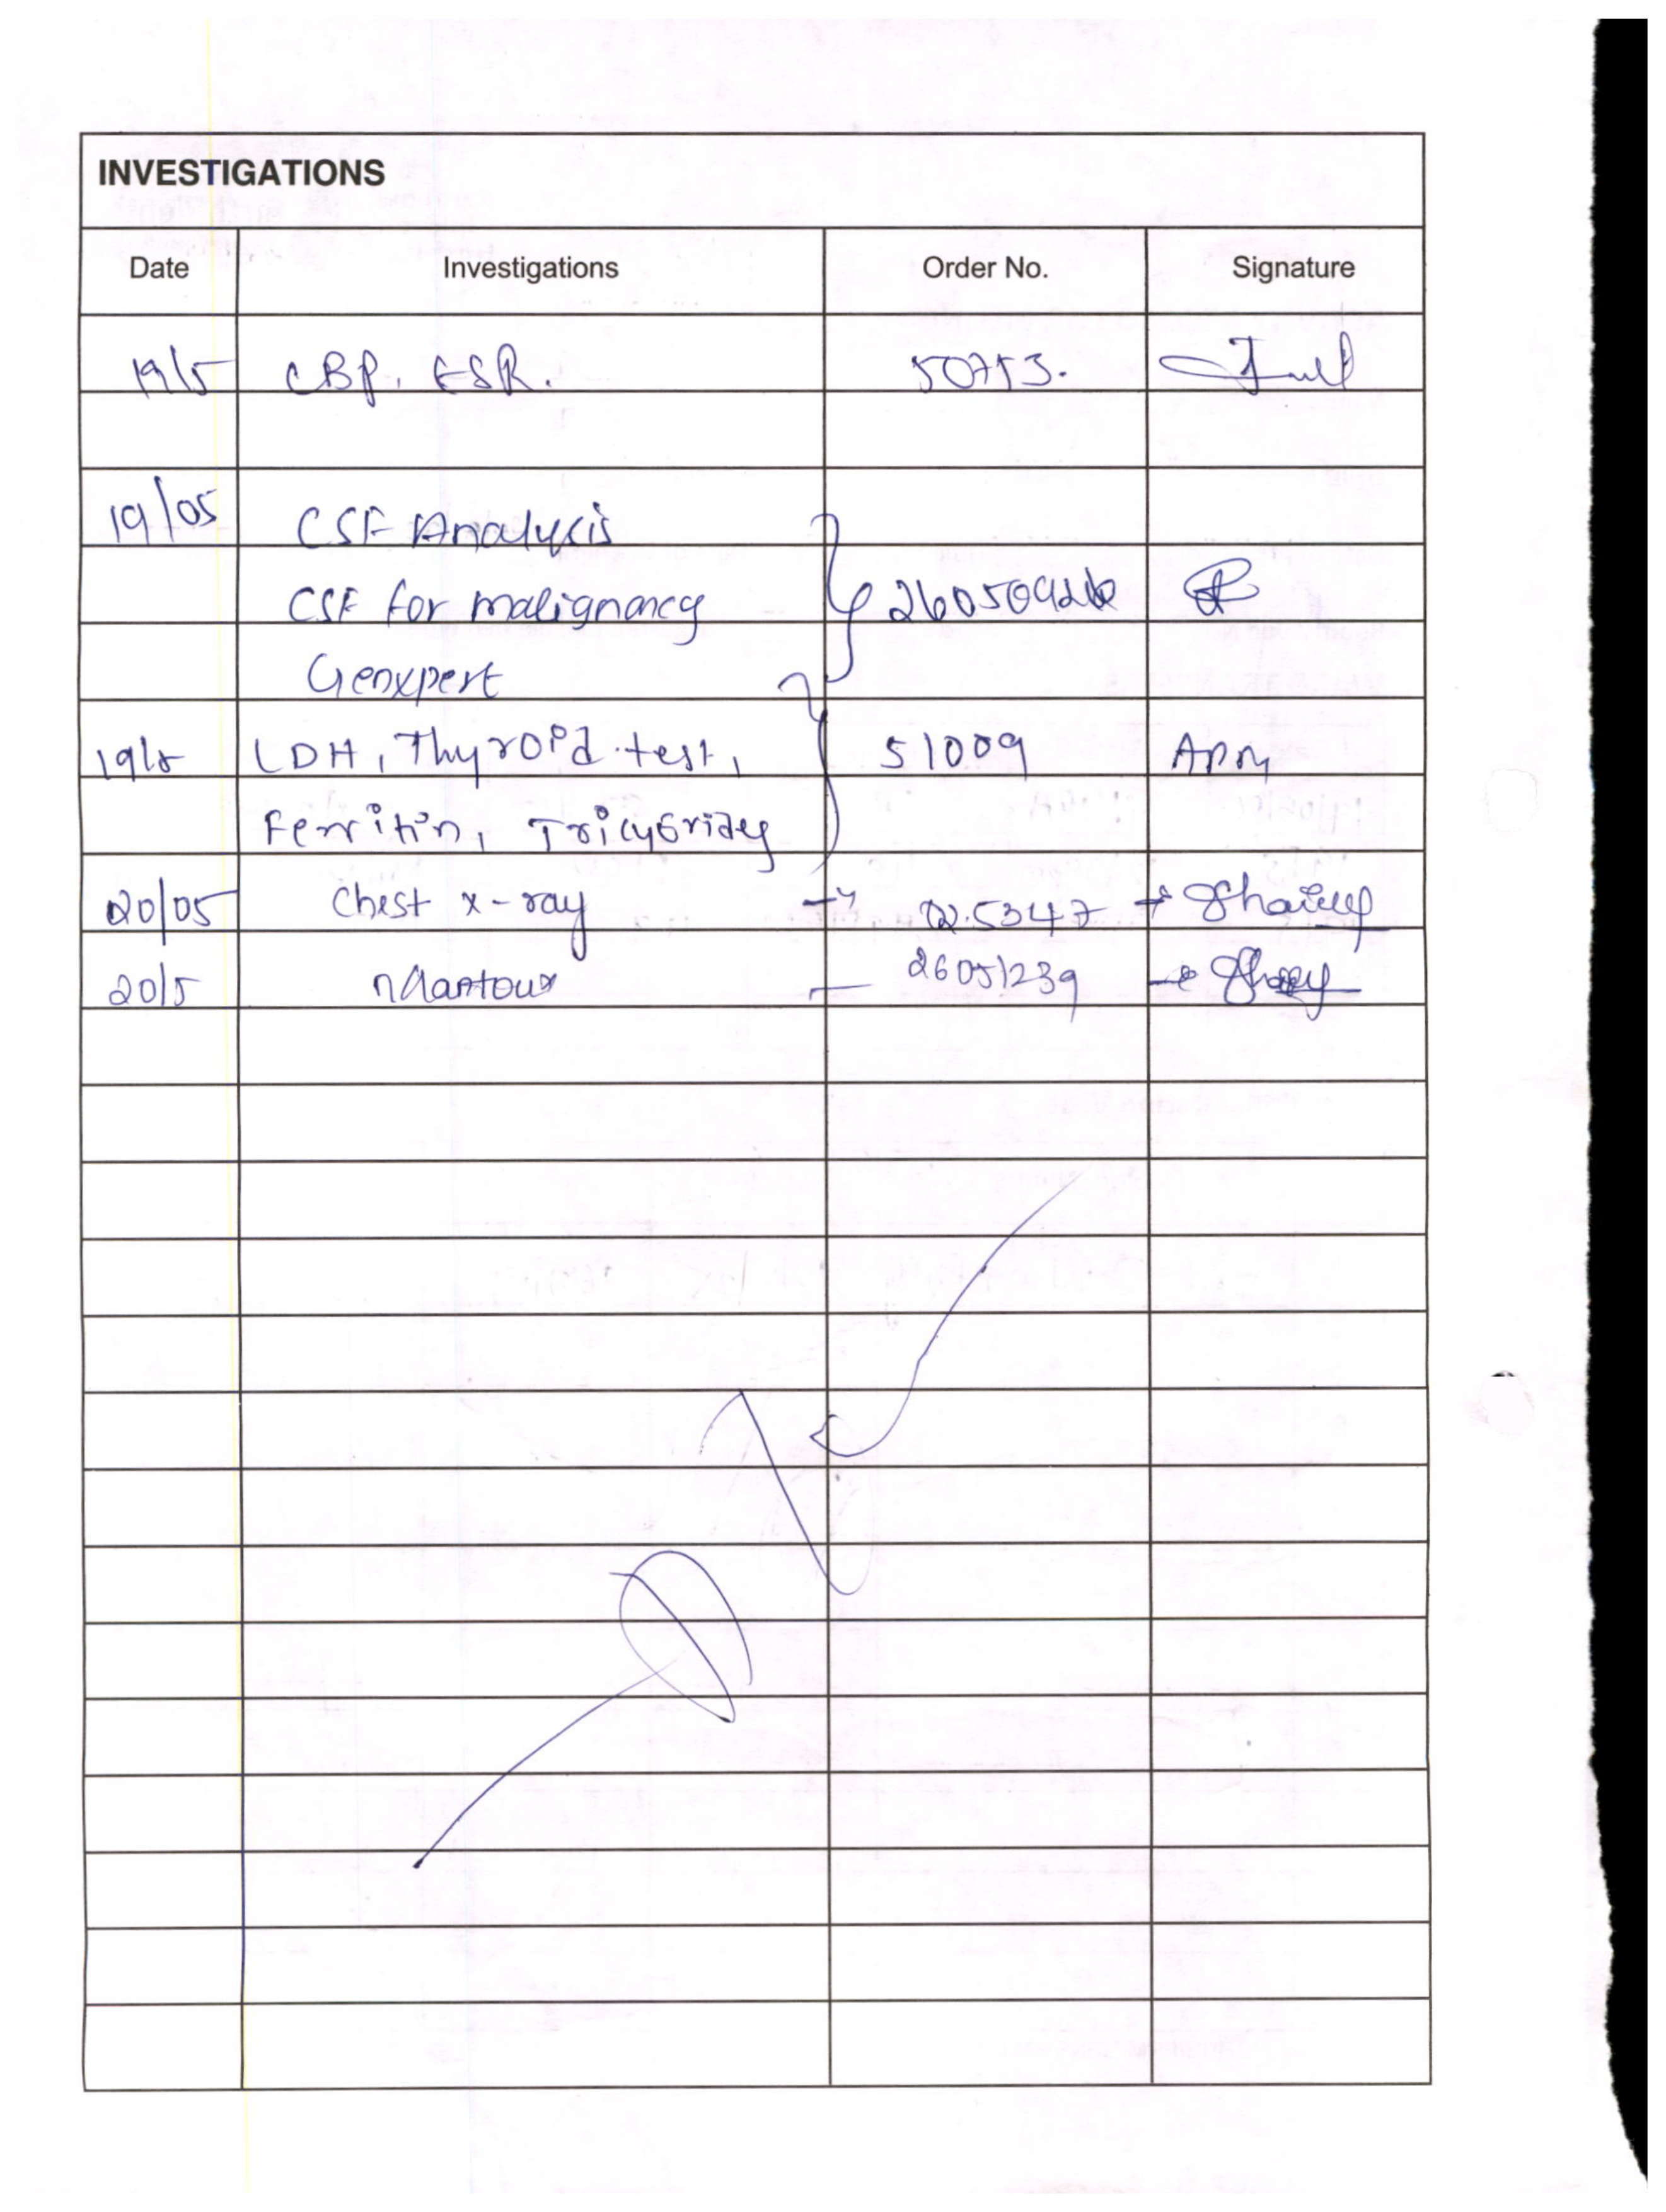 INVESTIGATIONS
Date Investigations Order No. Signature
19/5 CBP, ESR. 50753.
19/05 CSF Analysis
CSF for malignancy
Genxpert
19/5 LDH, Thyroid test, 51009
Ferritin, TricyGrides
20/05 Chest x-ray
20/5 Mantoux 26051239